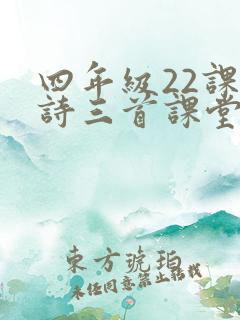 四年級22課
詩三首課堂
東方琥珀
未任同意禁止転載